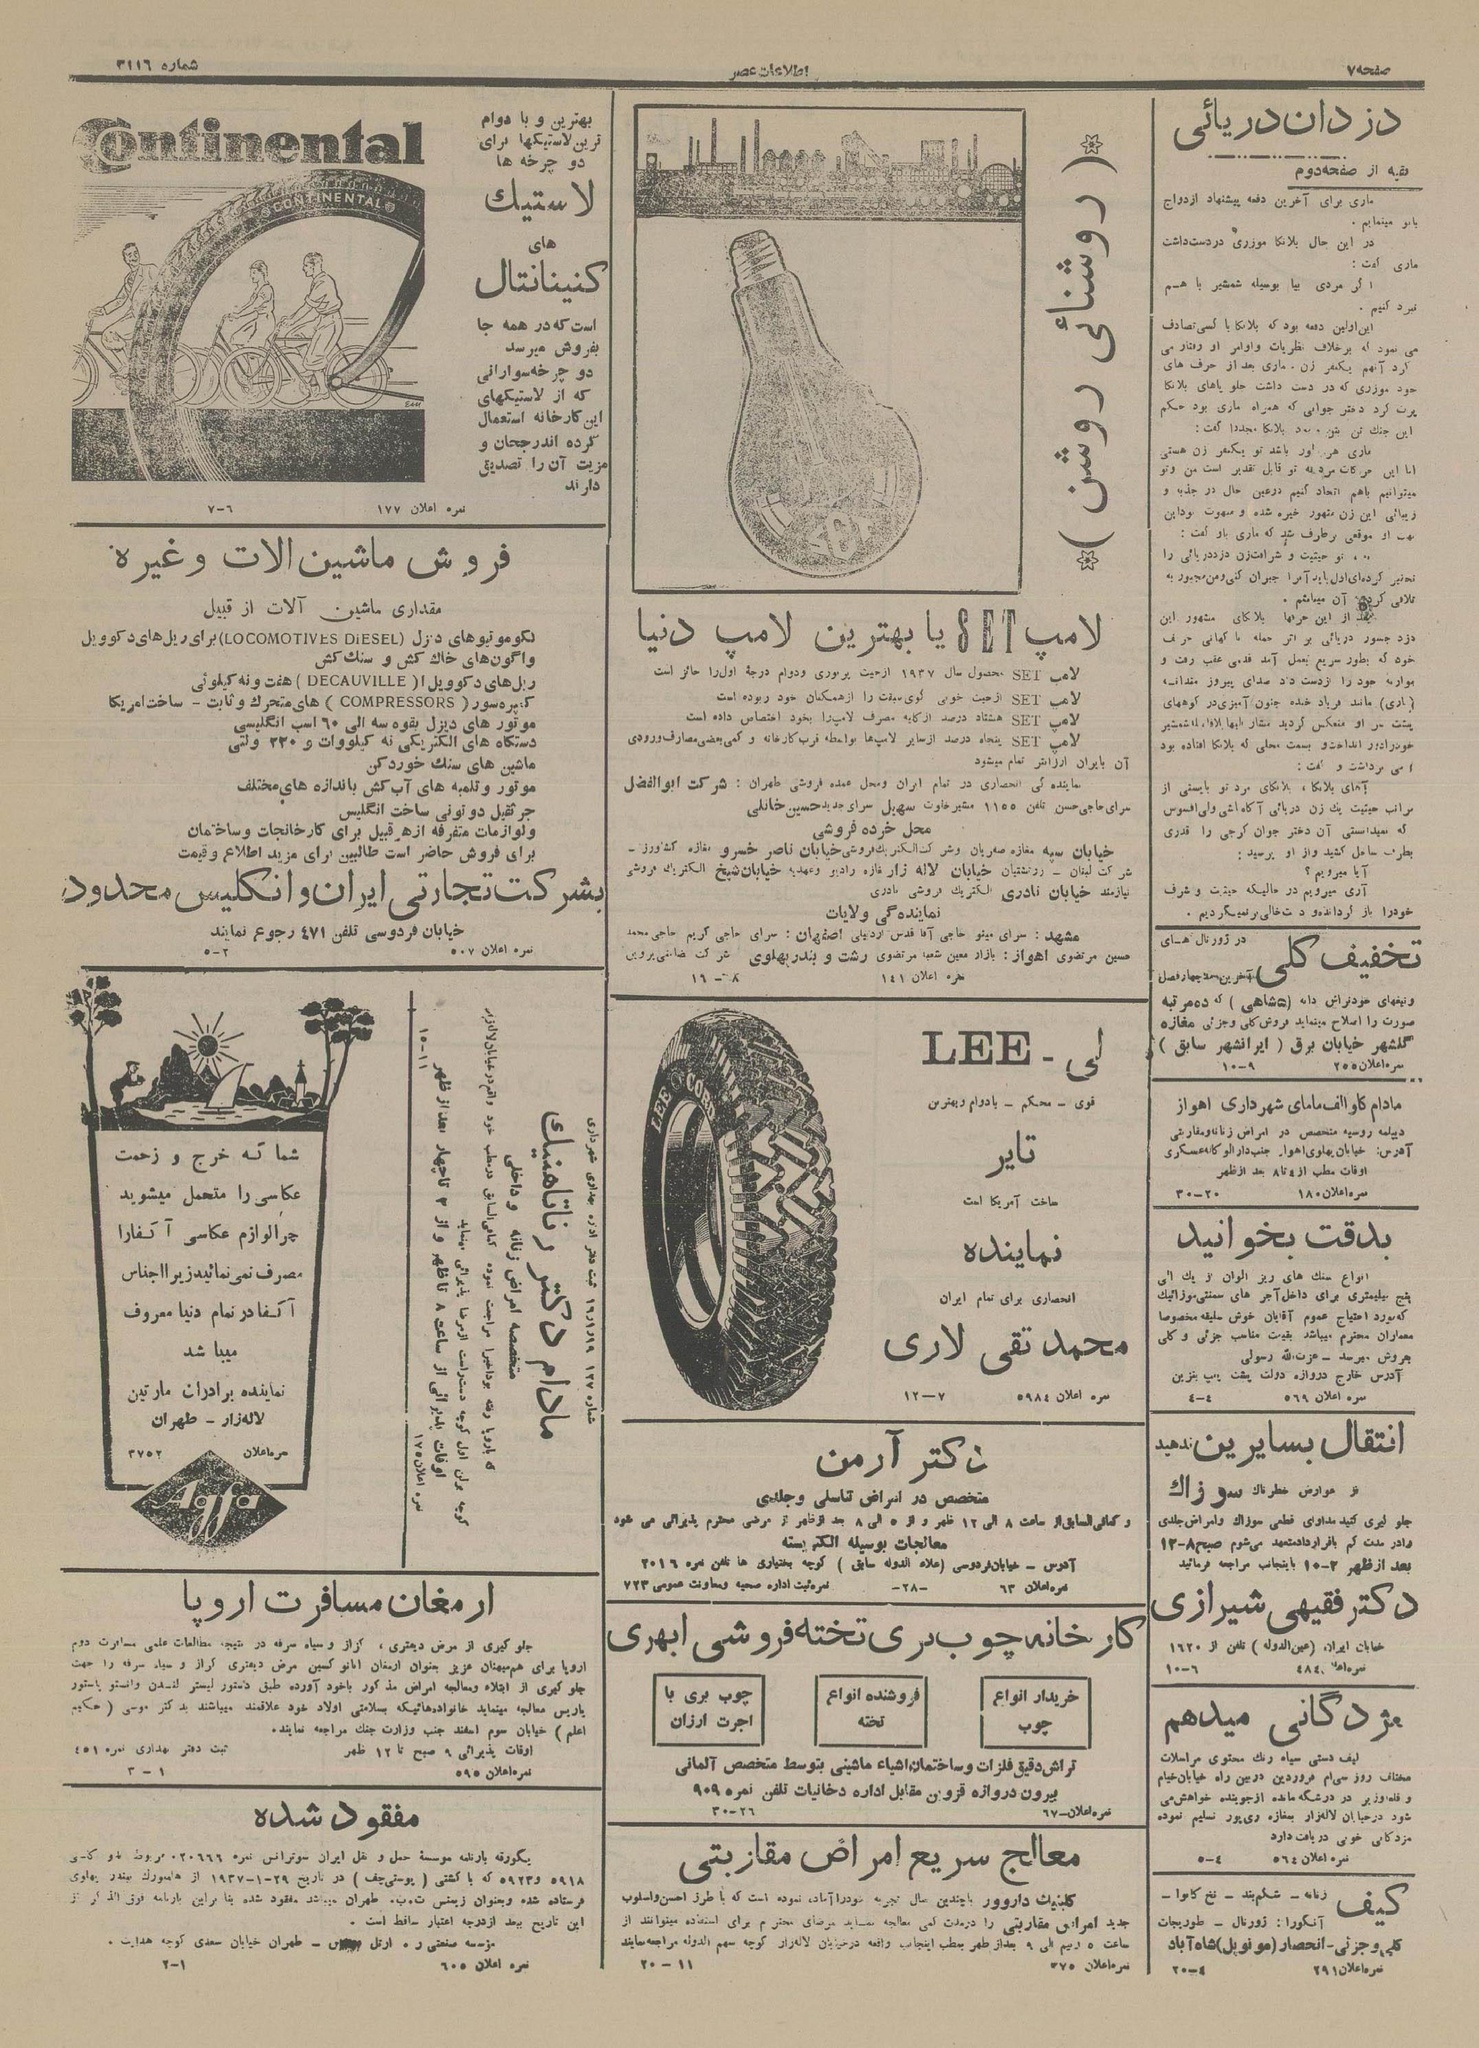 صفحه ۷
اطلاعات عصر
شماره ۳۱۱۶
دزدان دریائی
بقیه از صفحه دوم
ماری برای آخرین دفعه پیشنهاد ازدواج
باتو مینمایم.
در این حال بلانکا موزری دردست داشت
ماری گفت:
اگر مردی بیا بوسیله شمشیر با هم
نبرد کنیم.
این اولین دفعه بود که بلانکا با کسی تصادف
می نمود که برخلاف نظریات و اوامر او رفتار می
کرد آنهم یکنفر زن. ماری بعد از حرف های
خود موزری که در دست داشت جلو پاهای بلانکا
پرت کرد دختر جوانی که همراه ماری بود حکم
ماری هر طور باشد تو یکنفر زن هستی
میتوانیم باهم اتحاد کنیم درعین حال در جذبه و
زیبائی این زن مشهور خیره شده و مبهوت بود این
تلافی کردن آن میباشم.
بعد از این حرفها بلانکای مشهور این
دزد جسور دریائی بر اثر حمله ناگهانی حریف
خود که بطور سریع بعمل آمد قدمی عقب رفت و
آهای بلانکا، بلانکای مرد تو بایستی از
مراتب حیثیت یک زن دریائی آگاه باشی ولی افسوس
که نمیدانستی آن دختر جوان کرجی را قدری
بطرف ساحل کشید و از او پرسید:
آیا میرویم؟
آری میرویم در حالیکه حیثیت و شرف
خودرا باز گردانده و دست خالی برنمیگردیم.
تخفیف کلی
در ژورنال های
آخرین مد چهار فصل
و تیغهای خودتراش دانه (۵شاهی) که ده مرتبه
صورت را اصلاح مینماید فروش کلی و جزئی مغازه
گلشهر خیابان برق (ایرانشهر سابق)
نمره اعلان ۲۵۵ ۹-۱۰
مادام کاوالف مامای شهرداری اهواز
دیپلمه روسیه متخصص در امراض زنانه و مقاربتی
آدرس: خیابان پهلوی اهواز جنب دارالوکاله عسکری
اوقات مطب از ۴ تا ۸ بعد از ظهر
نمره اعلان ۱۸۰ ۲۰-۳۰
بدقت بخوانید
انواع سنگ های ریز الوان از یک الی
پنج میلیمتری برای داخل آجر های سمنتی موزائیک
که مورد احتیاج عموم آقایان خوش سلیقه مخصوصا
معماران محترم میباشد بقیمت مناسب جزئی و کلی
بفروش میرسد - عزت الله رسولی
آدرس خارج دروازه دولت پشت پمپ بنزین
نمره اعلان ۵۶۹ ۴-۴
انتقال بسایرین ندهید
از عوارض خطرناک سوزاک
جلو گیری کنید مداوای قطعی سوزاک و امراض جلدی
را در مدت کم با قرارداد متعهد می شوم صبح ۸-۱۲
بعد از ظهر ۲-۱۰ باینجانب مراجعه فرمائید
دکتر فقیهی شیرازی
خیابان ایران (عین الدوله) تلفن از ۱۶۲۰
۶-۱۰
مژدگانی میدهم
کیف دستی سیاه رنگ محتوی مراسلات
مختلف روز سی ام فروردین دربین راه خیابان خیام
و قلعه وزیر در درشکه مانده از جوینده خواهش می
شود درخیابان لاله زار بمغازه ری پور تسلیم نموده
مژدگانی خوبی دریافت دارد
نمره اعلان ۵۶۴ ۴-۵
کیف زنانه - شکم بند - نخ کانوا -
آنگورا: ژورنال - طوریجات
کلی و جزئی - انحصار (مونوپل) شاه آباد
نمره اعلان ۲۹۱ ۴-۲۰
(روشنائی روشن)
SET
لامپ SET یا بهترین لامپ دنیا
لامپ SET محصول سال ۱۹۳۷ ازحیث پرنوری و دوام درجه اول را حائز است
لامپ SET ازحیث خوبی گوی سبقت را از همگنان خود ربوده است
لامپ SET هشتاد درصد ازکلیه مصرف لامپ را بخود اختصاص داده است
لامپ SET پنجاه درصد ازسایر لامپ ها بواسطه قرب کارخانه و کمی بعضی مصارف ورودی
آن بایران ارزانتر تمام میشود
نماینده گی انحصاری در تمام ایران و محل عمده فروشی طهران: شرکت ابوالفضل
سرای حاجی حسن تلفن ۱۱۵۵ مشیر خلوت سهیل سرای جدید حسین خانلی
محل خرده فروشی
خیابان سپه مغازه صفریان و شرکت الکتریک فروشی خیابان ناصر خسرو مغازه کشاورز -
شرکت لبنان - روشنفیان خیابان لاله زار مغازه رادیو و عهدیه خیابان شیخ الکتریک فروشی
نیازمند خیابان نادری الکتریک فروشی نادری
نماینده گی ولایات
مشهد: سرای مینو حاجی آقا قدس اردبیلی اصفهان: سرای حاجی کریم حاجی محمد
حسین مرتضوی اهواز: بازار معین شعبه مرتضوی رشت و بندر پهلوی شرکت ضامنی پروین
نمره اعلان ۱۴۱ ۸-۱۶
LEE CORD
لی - LEE
قوی - محکم - بادوام و بهترین
تایر
ساخت آمریکا است
نماینده
انحصاری برای تمام ایران
محمد تقی لاری
نمره اعلان ۵۹۸۴ ۷-۱۲
دکتر آرمن
متخصص در امراض تناسلی و جلدی
و کمافی السابق از ساعت ۸ الی ۱۲ ظهر و از ۵ الی ۸ بعد از ظهر از مرضی محترم پذیرائی می شود
معالجات بوسیله الکتریسته
آدرس - خیابان فردوسی (علاء الدوله سابق) کوچه بختیاری ها تلفن نمره ۲۰۱۶
نمره اعلان ۶۳ -۲۸- نمره ثبت اداره صحیه و معاونت عمومی ۷۲۳
کارخانه چوب بری تخته فروشی ابهری
خریدار انواع چوب
فروشنده انواع تخته
چوب بری با اجرت ارزان
تراش دقیق فلزات و ساختمان اشیاء ماشینی بتوسط متخصص آلمانی
بیرون دروازه قزوین مقابل اداره دخانیات تلفن نمره ۹۰۹
نمره اعلان - ۶۷ ۲۶-۳۰
معالج سریع امراض مقاربتی
کلینیک داروور باچندین سال تجربه خود را آماده نموده است که با طرز احسن و اسلوب
جدید امراض مقاربتی را درمدت کمی معالجه نماید مرضای محترم برای استفاده میتوانند از
ساعت ۵ و نیم الی ۹ بعد از ظهر بمطب اینجانب واقعه درخیابان لاله زار کوچه سهم الدوله مراجعه نمایند
نمره اعلان ۳۷۵ ۱۱-۲۰
Continental
CONTINENTAL
بهترین و با دوام
ترین لاستیکها برای
دو چرخه ها
لاستیک
های
کنتینانتال
است که در همه جا
بفروش میرسد
دو چرخه سوارانی
که از لاستیکهای
این کارخانه استعمال
کرده اند رجحان و
مزیت آن را تصدیق
دارند
نمره اعلان ۱۷۷ ۶-۷
فروش ماشین الات و غیره
مقداری ماشین آلات از قبیل
لکوموتیوهای دیزل (LOCOMOTIVES DIESEL) برای ریل های دکوویل
واگون های خاک کش و سنگ کش
ریل های دکوویل (DECAUVILLE) هفت و نه کیلوئی
کمپرسور (COMPRESSORS) های متحرک و ثابت - ساخت امریکا
موتور های دیزل بقوه سه الی ۶۰ اسب انگلیسی
دستگاه های الکتریکی نه کیلووات و ۲۲۰ ولتی
ماشین های سنگ خوردکن
موتور و تلمبه های آب کش باندازه های مختلف
جرثقیل دو تونی ساخت انگلیس
و لوازمات متفرقه از هر قبیل برای کارخانجات و ساختمان
برای فروش حاضر است طالبین برای مزید اطلاع و قیمت
بشرکت تجارتی ایران و انگلیس محدود
خیابان فردوسی تلفن ۴۷۱ رجوع نمایند
نمره اعلان ۵۰۷ ۲-۵
شماره ۱۲۷ ثبت دفتر اداره بهداری شهرداری
مادام دکتر رناتاهنیک
متخصصه امراض زنانه و داخلی
که باروپا رفته بود اخیرا مراجعت نموده کمافی السابق درمطب خود واقع در خیابان لاله زار
کوچه برلن اول کوچه دست راست از مرضا پذیرائی مینماید
اوقات پذیرائی از ساعت ۸ تا ظهر و از ۳ تا چهار بعد از ظهر
نمره اعلان ۱۷۵ ۱۱-۱۵
شما که خرج و زحمت
عکاسی را متحمل میشوید
چرا لوازم عکاسی آکفا را
مصرف نمی نمائید زیرا اجناس
آکفا در تمام دنیا معروف
میباشد
نماینده برادران مارتین
لاله زار - طهران
نمره اعلان ۳۷۵۲
Agfa
ارمغان مسافرت اروپا
جلو گیری از مرض دیفتری، کزاز و سیاه سرفه در نتیجه مطالعات علمی مسافرت دوم
اروپا برای هم میهنان عزیز بعنوان ارمغان اناتوکسین مرض دیفتری کزاز و سیاه سرفه را جهت
جلو گیری از ابتلاء و معالجه امراض مذکور باخود آورده طبق دستور لیستر لندن و انستو پاستور
پاریس معالجه مینماید خانواده هائیکه بسلامتی اولاد خود علاقمند میباشند بدکتر موسی (حکیم
اعلم) خیابان سوم اسفند جنب وزارت جنگ مراجعه نمایند.
اوقات پذیرائی ۹ صبح تا ۱۲ ظهر ثبت دفتر بهداری نمره ۴۵۱
نمره اعلان ۵۹۵ ۱-۳
مفقود شده
یکورقه بارنامه موسسه حمل و نقل ایران سوترانس نمره ۰۲۰۶۶۶ مربوط
۵۹۱۸ و ۵۹۲۳ که با کشتی (یوستی چف) در تاریخ ۲۹-۱-۱۹۳۷ از هامبورک ببندر پهلوی
فرستاده شده و بعنوان زیمنس طهران میباشد مفقود شده بنا براین بارنامه فوق الذکر از
این تاریخ ببعد از درجه اعتبار ساقط است.
طهران خیابان سعدی کوچه هدایت.
نمره اعلان ۶۰۵ ۱-۲